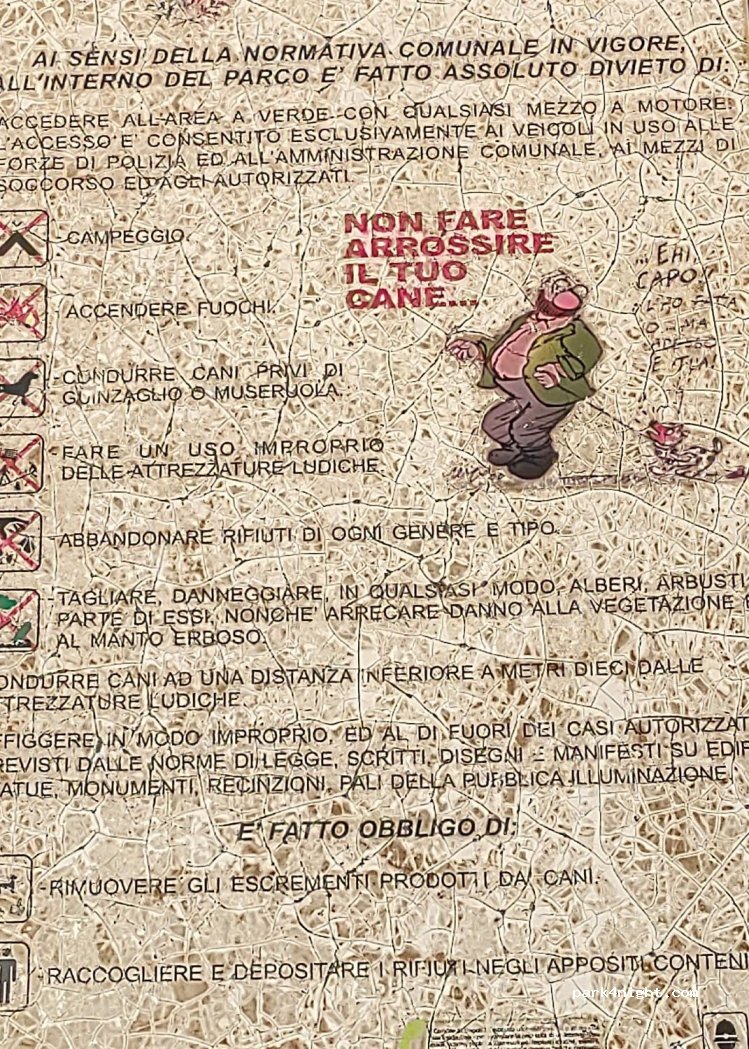 AI SENSI DELLA NORMATIVA COMUNALE IN VIGORE,
ALL'INTERNO DEL PARCO E' FATTO ASSOLUTO DIVIETO DI:
ACCEDERE ALL'AREA A VERDE CON QUALSIASI MEZZO A MOTORE:
L'ACCESSO E' CONSENTITO ESCLUSIVAMENTE AI VEICOLI IN USO ALLE
FORZE DI POLIZIA ED ALL'AMMINISTRAZIONE COMUNALE, AI MEZZI DI
SOCCORSO ED AGLI AUTORIZZATI
-CAMPEGGIO.
NON FARE
ARROSSIRE
IL TUO
CANE...
... EHI
CAPO!
- ACCENDERE FUOCHI.
-CONDURRE CANI PRIVI DI
GUINZAGLIO O MUSERUOLA.
-FARE UN USO IMPROPRIO
DELLE ATTREZZATURE LUDICHE.
-ABBANDONARE RIFIUTI DI OGNI GENERE E TIPO.
-TAGLIARE, DANNEGGIARE, IN QUALSIASI MODO, ALBERI, ARBUSTI
PARTE DI ESSI, NONCHE' ARRECARE DANNO ALLA VEGETAZIONE E
AL MANTO ERBOSO.
ONDURRE CANI AD UNA DISTANZA INFERIORE A METRI DIECI DALLE
TTREZZATURE LUDICHE.
FFIGGERE, IN MODO IMPROPRIO, ED AL DI FUORI DEI CASI AUTORIZZAT
REVISTI DALLE NORME DI LEGGE, SCRITTI, DISEGNI E MANIFESTI SU EDIF
ATUE, MONUMENTI, RECINZIONI, PALI DELLA PUBBLICA ILLUMINAZIONE.
E' FATTO OBBLIGO DI:
-RIMUOVERE GLI ESCREMENTI PRODOTTI DAI CANI.
-RACCOGLIERE E DEPOSITARE I RIFIUTI NEGLI APPOSITI CONTENI
park4night.com